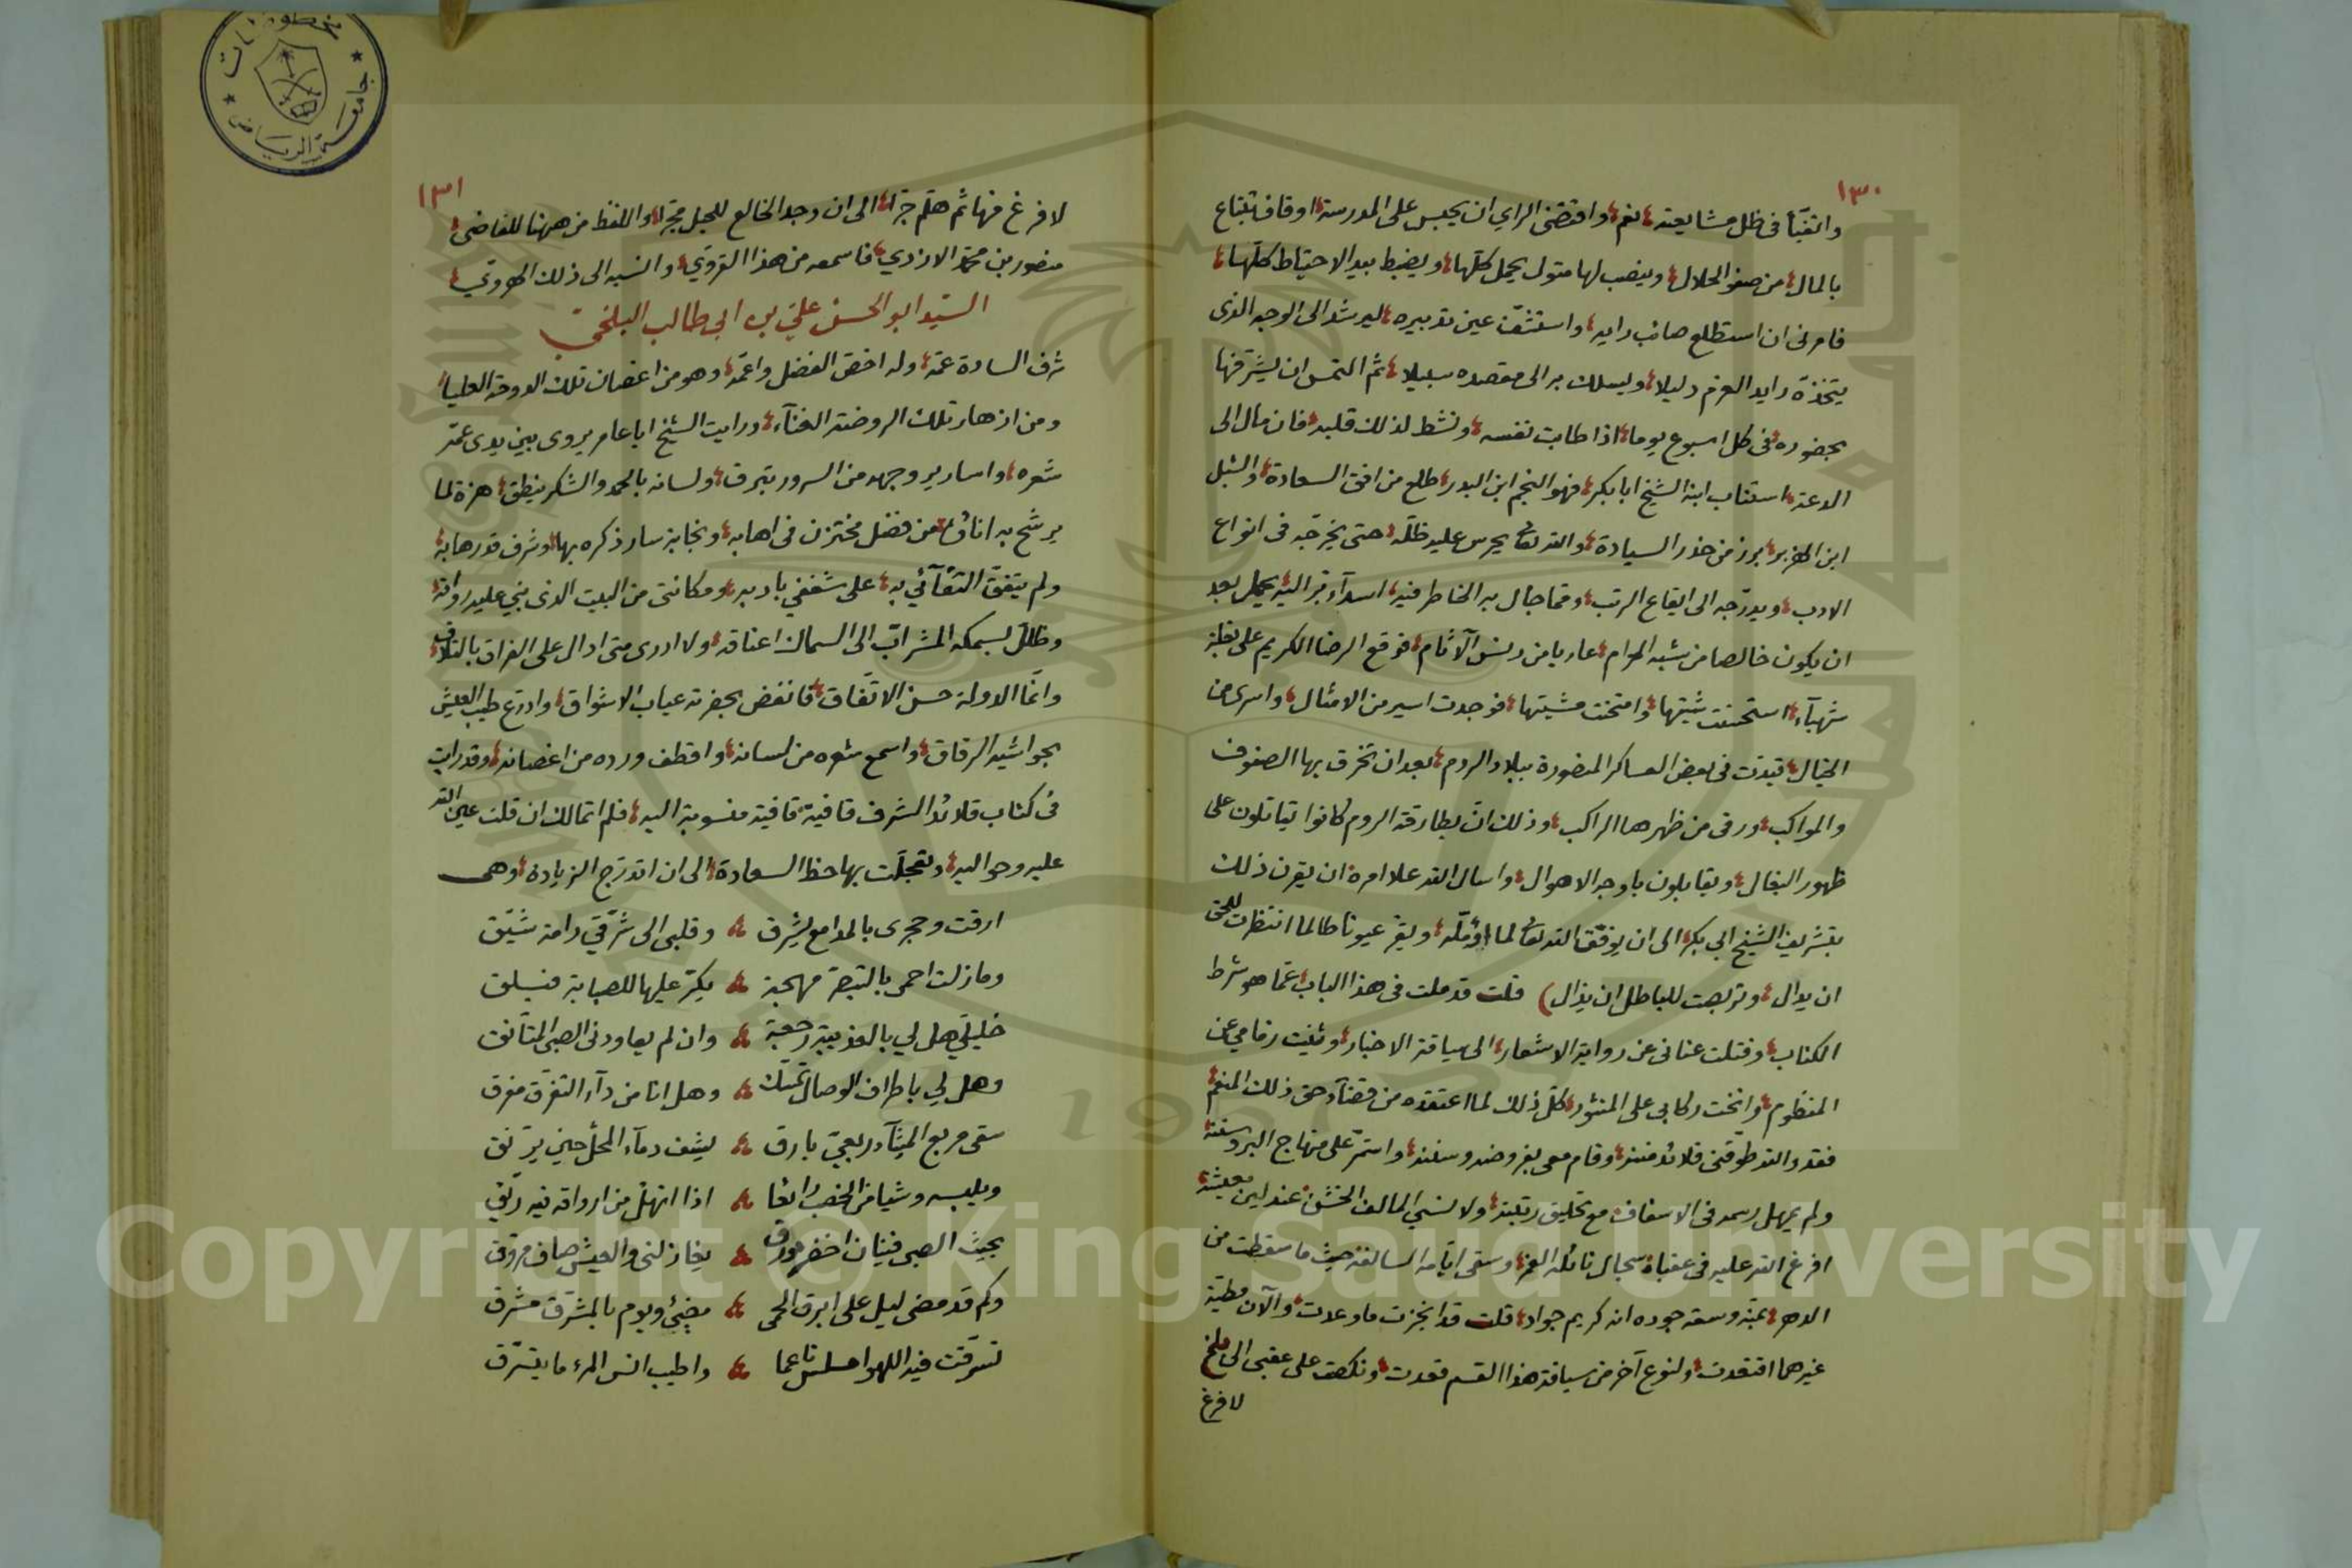 ١٣٠
واتفيّأ في ظل مشايعته نعم واقتضى الراي ان يحبس على المدرسة اوقاف تبتاع
بالمال من صفو الحلال وينصب لها متول يحمل كلّها ويضبط بيد الاحتياط كلّها
فامرني ان استطلع صائب رايه واستشفّ عين تدبيره ليرشد الى الوجه الذي
يتخذه رايد العزم دليلا ويسلك به الى مقصده سبيلا ثم التمس ان يشرّفها
بحضوره في كل اسبوع يوما اذا طابت نفسه ونشط لذلك قلبه فان مال الى
الدعة استناب ابنه الشيخ ابا بكر فهو النجم ابن البدر طلع من افق السعادة والشبل
ابن الهزبر برز من خدر السيادة والله تعالى يحرس عليه ظلّه حتى يخرّجه في انواع
الادب ويدرّجه الى ايفاع الرتب ومما جال به الخاطر فيه اسدآء قربة اليه يحمل بعد
ان يكون خالصا من شبه الحرام عاريا من دنس الآثام فوقع الرضا الكريم على بغلة
شهبآء استحسنت شيتها وامتحنت مشيتها فوجدت اسير من الامثال واسرى من
الخيال قيدت في بعض العساكر المنصورة ببلاد الروم بعد ان تخرق بها الصفوف
والمواكب ورقى من ظهرها الراكب وذلك انّ بطارقة الروم كانوا يقاتلون على
ظهور البغال ويقابلون باوجه الاهوال واسال الله علا امره ان يقرن ذلك
بتشريف الشيخ ابي بكر الى ان يوفّق الله تعالى لما اؤمّله ويقرّ عيونا طالما انتظرت للحق
ان يدال وتربصت للباطل ان يذال) قلت قد ملت في هذا الباب عما هو شرط
الكتاب وفتلت عناني عن رواية الاشعار الى سياقة الاخبار وثنيت زمامي عن
المنظوم وانخت ركابي على المنثور كل ذلك لما اعتقده من قضآء حق ذلك المنعم
فقد والله طوّقني قلائد مننه وقام معي بفروضه وسننه واستمرّ على منهاج البر وسننه
ولم يمهل رسمه في الاسعاف مع تحليق رتبته ولا نسي المالف الخشن عند لين معيشته
افرغ الله عليه في عقباه سجال نائله الغمر وسقى ايّامه السالفة حيث ما سقطت من
الدهر بمنّه وسعة جوده انه كريم جواد قلت قد انجزت ما وعدت والآن مطية
غيرهما افتقدت ولنوع آخر من سياقة هذا القسم قعدت ونكصت على عقبي الى بلخ
لافرغ
١٣١
لافرغ منها ثم هلمّ جرّا الى ان وجد الخالع للجيل مجرّا والفظ من ههنا للقاضي
منصور بن محمد الازدي فاسمعه من هذا القروي وانسبه الى ذلك الهروي
السيّد ابو الحسن علي بن ابي طالب البلخي
شرف السادة عمّه وله اخصّ الفضل واعمّه وهو من اغصان تلك الدوحة العليا
ومن ازهار تلك الروضة الغنآء ورايت الشيخ ابا عامر يروي بين يدي عمّه
شعره واسارير وجهه من السرور تبرق ولسانه بالحمد والشكر ينطق هزة لما
يرشح به اناؤه من فضل مختزن في اهابه ونجابة سار ذكره بها وشرف قدرها به
ولم يتفق التقآئي به على شغفي بادبه ومكانتي من البيت الذي بني عليه رواقه
وظللّ بسمكه المشرابّ الى السماك اعناقه ولا ادري متى ادال على الفراق بالتلاقي
وانّما الدولة حسن الاتّفاق فانفض بحضرته عياب الاشواق وادّرع طيب العيش
بحواشيه الرقاق واسمع شعره من لسانه واقطف ورده من اغصانه وقد رايت
في كتاب قلائد الشرف قافية قافية منسوبة اليه فلم اتمالك ان قلت عين الله
عليه وحواليه وتعجلّت بها حظ السعادة الى ان اتدرّج الزيادة وهي
ارقت وحجري بالمدامع يشرق ؞ وقلبي الى شرقي رامة شيّق
وما زلت احمي بالتبصّر مهجة ؞ يكرّ عليها للصبابة فيسلق
خليليّ هل لي بالعذيبة رجعة ؞ وان لم يعاودني الصبى المتانّق
وهل لي باطراف الوصال تمسّك ؞ وهل انا من دآء التفرّق مفرق
سقى مربع الميثآء ربعيّ بارق ؞ يشف دمآء المحل حين يرنّق
ويلبسه وشيا من الخصب رائعا ؞ اذا انهلّ من ارواقه فيه ريّق
بحيث الصبى فينان اخضر مورق ؞ يغازلني والعيش صاف مروّق
وكم قد مضى ليل على ابرق الحمى ؞ مضيئ ويوم بالمشرّق مشرق
تسرّقت فيه اللهو املس ناعما ؞ واطيب انس المرء ما يتسرّق
جامعة الرياض
Copyright © King Saud University